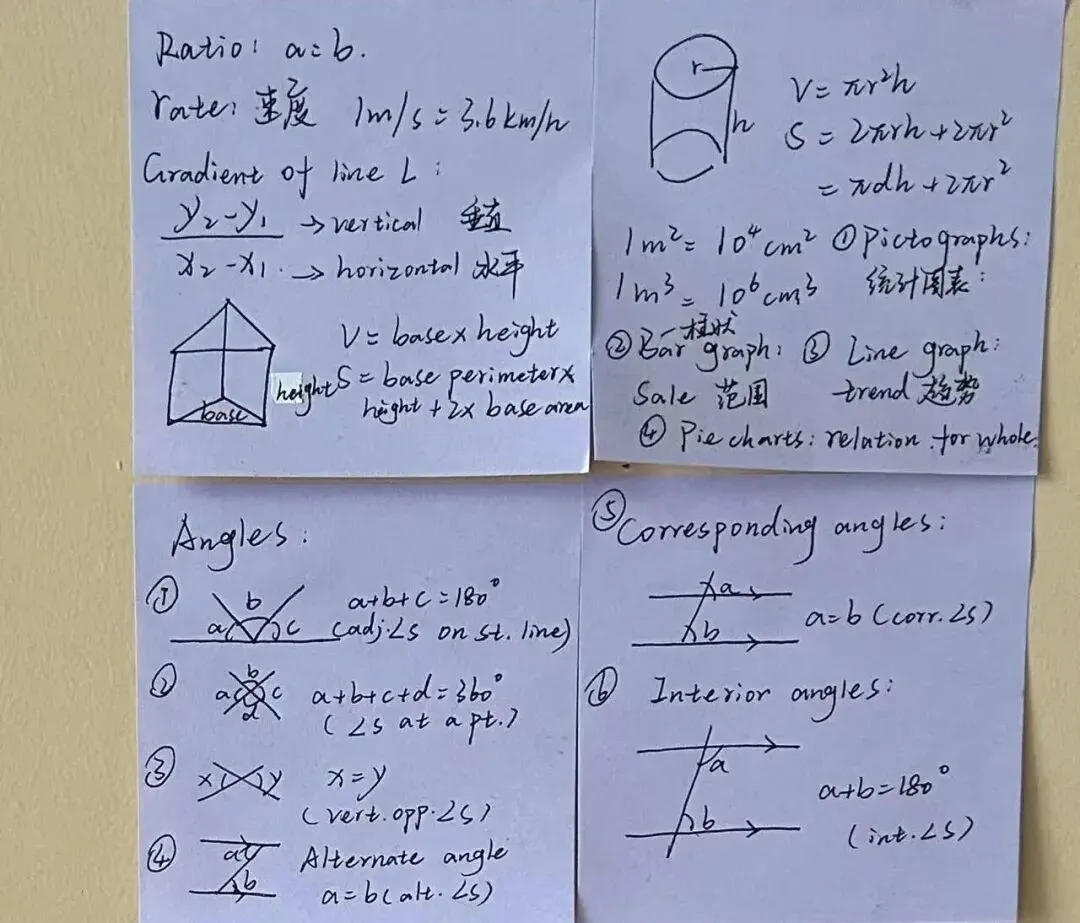 Ratio: a:b.
rate: 速度 1m/s = 3.6km/h
Gradient of line L:
y₂-y₁ → vertical 垂直
x₂-x₁. → horizontal 水平
V = base x height
height
S = base perimeter x
height + 2x base area
base
r
h
V = πr²h
S = 2πrh + 2πr²
= πdh + 2πr²
1m² = 10⁴cm² ① Pictographs:
1m³ = 10⁶cm³ 统计图表:
② Bar graph: 柱状 ③ Line graph:
Sale 范围 trend 趋势
④ Pie charts: relation for whole.
Angles:
① a b c a+b+c=180°
(adj.∠s on st. line)
② a b c d a+b+c+d=360°
(∠s at a pt.)
③ x y x=y
(vert.opp.∠s)
④ a b Alternate angle
a=b (alt.∠s)
⑤ Corresponding angles:
a
b
a=b (corr.∠s)
⑥ Interior angles:
a
b
a+b=180°
(int.∠s)